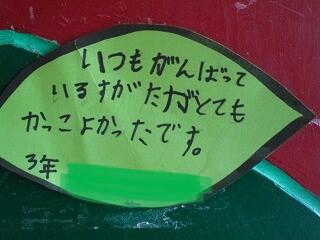 いつもがんばって
いるすがたがとても
かっこよかったです。
3年